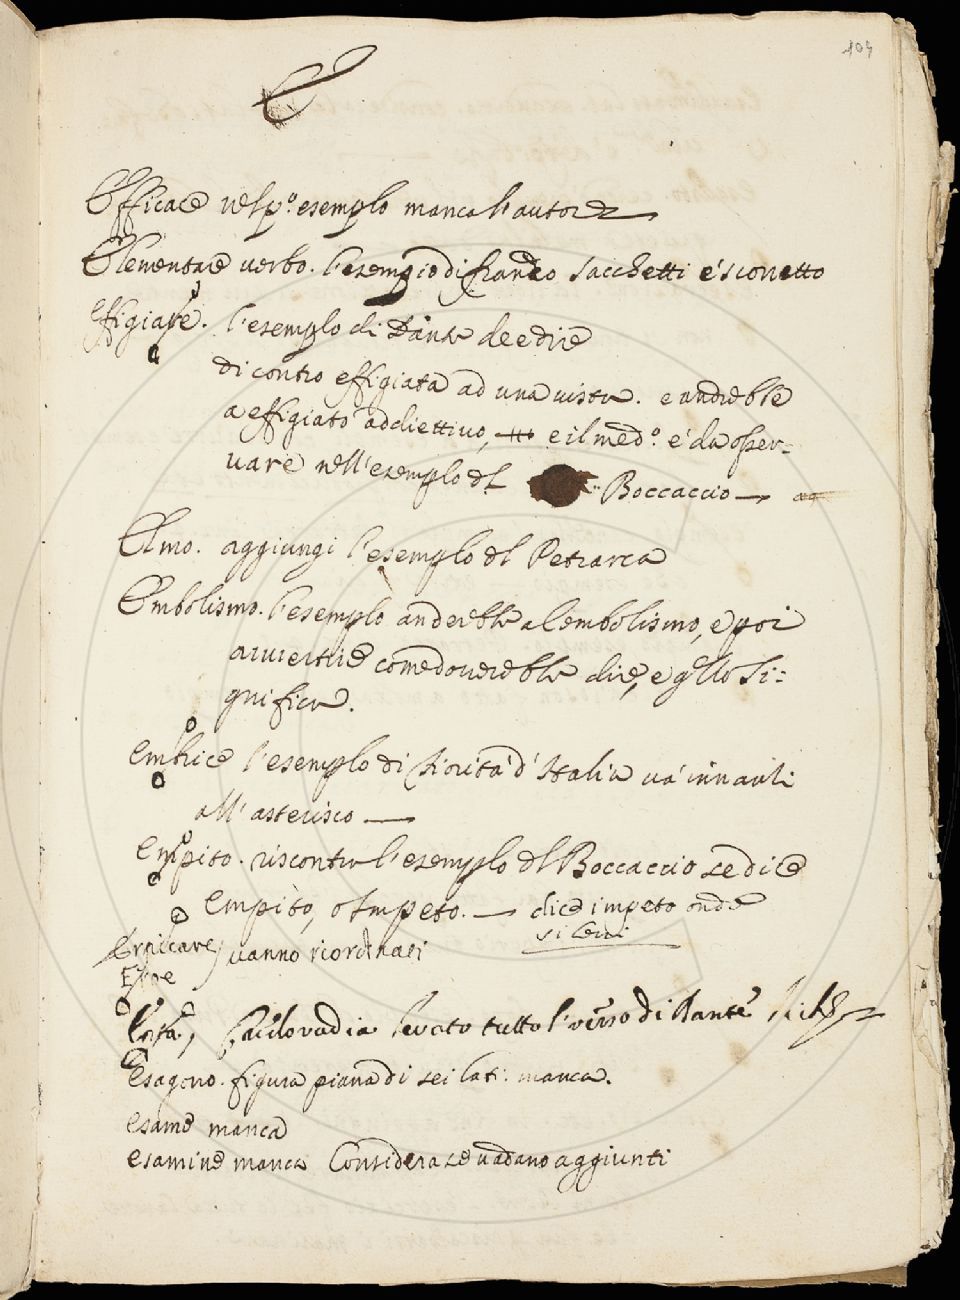 104
E
Efficace nel p.º esempio manca l'autore
Elementare verbo. l'esempio di franco sacchetti è scorretto
effigiare. l'esempio di Dante dee dire
di contro effigiata ad una vista. e andrebbe
a effigiato addiettivo, e il med.º e' da osser-
vare nell'esempio del Boccaccio
Elmo. aggiungi l'esempio del Petrarca
Embolismo. l'esempio anderebbe a lembolismo, e poi
avvertire come doverebbe dire, e qllo si-
gnifica.
embrice l'esempio di Fiorità d'Italia va innanzi
all'asterisco
empito. riscontra l'esempio del Boccaccio se dice
empito, o Impeto. dice impeto onde
si levi
Erpicare vanno riordinati
Erpe
levato tutto l'verso di Dante
Esagono. figura piana di sei lati. manca.
esame manca
esamine manca Considera se vadano aggiunti